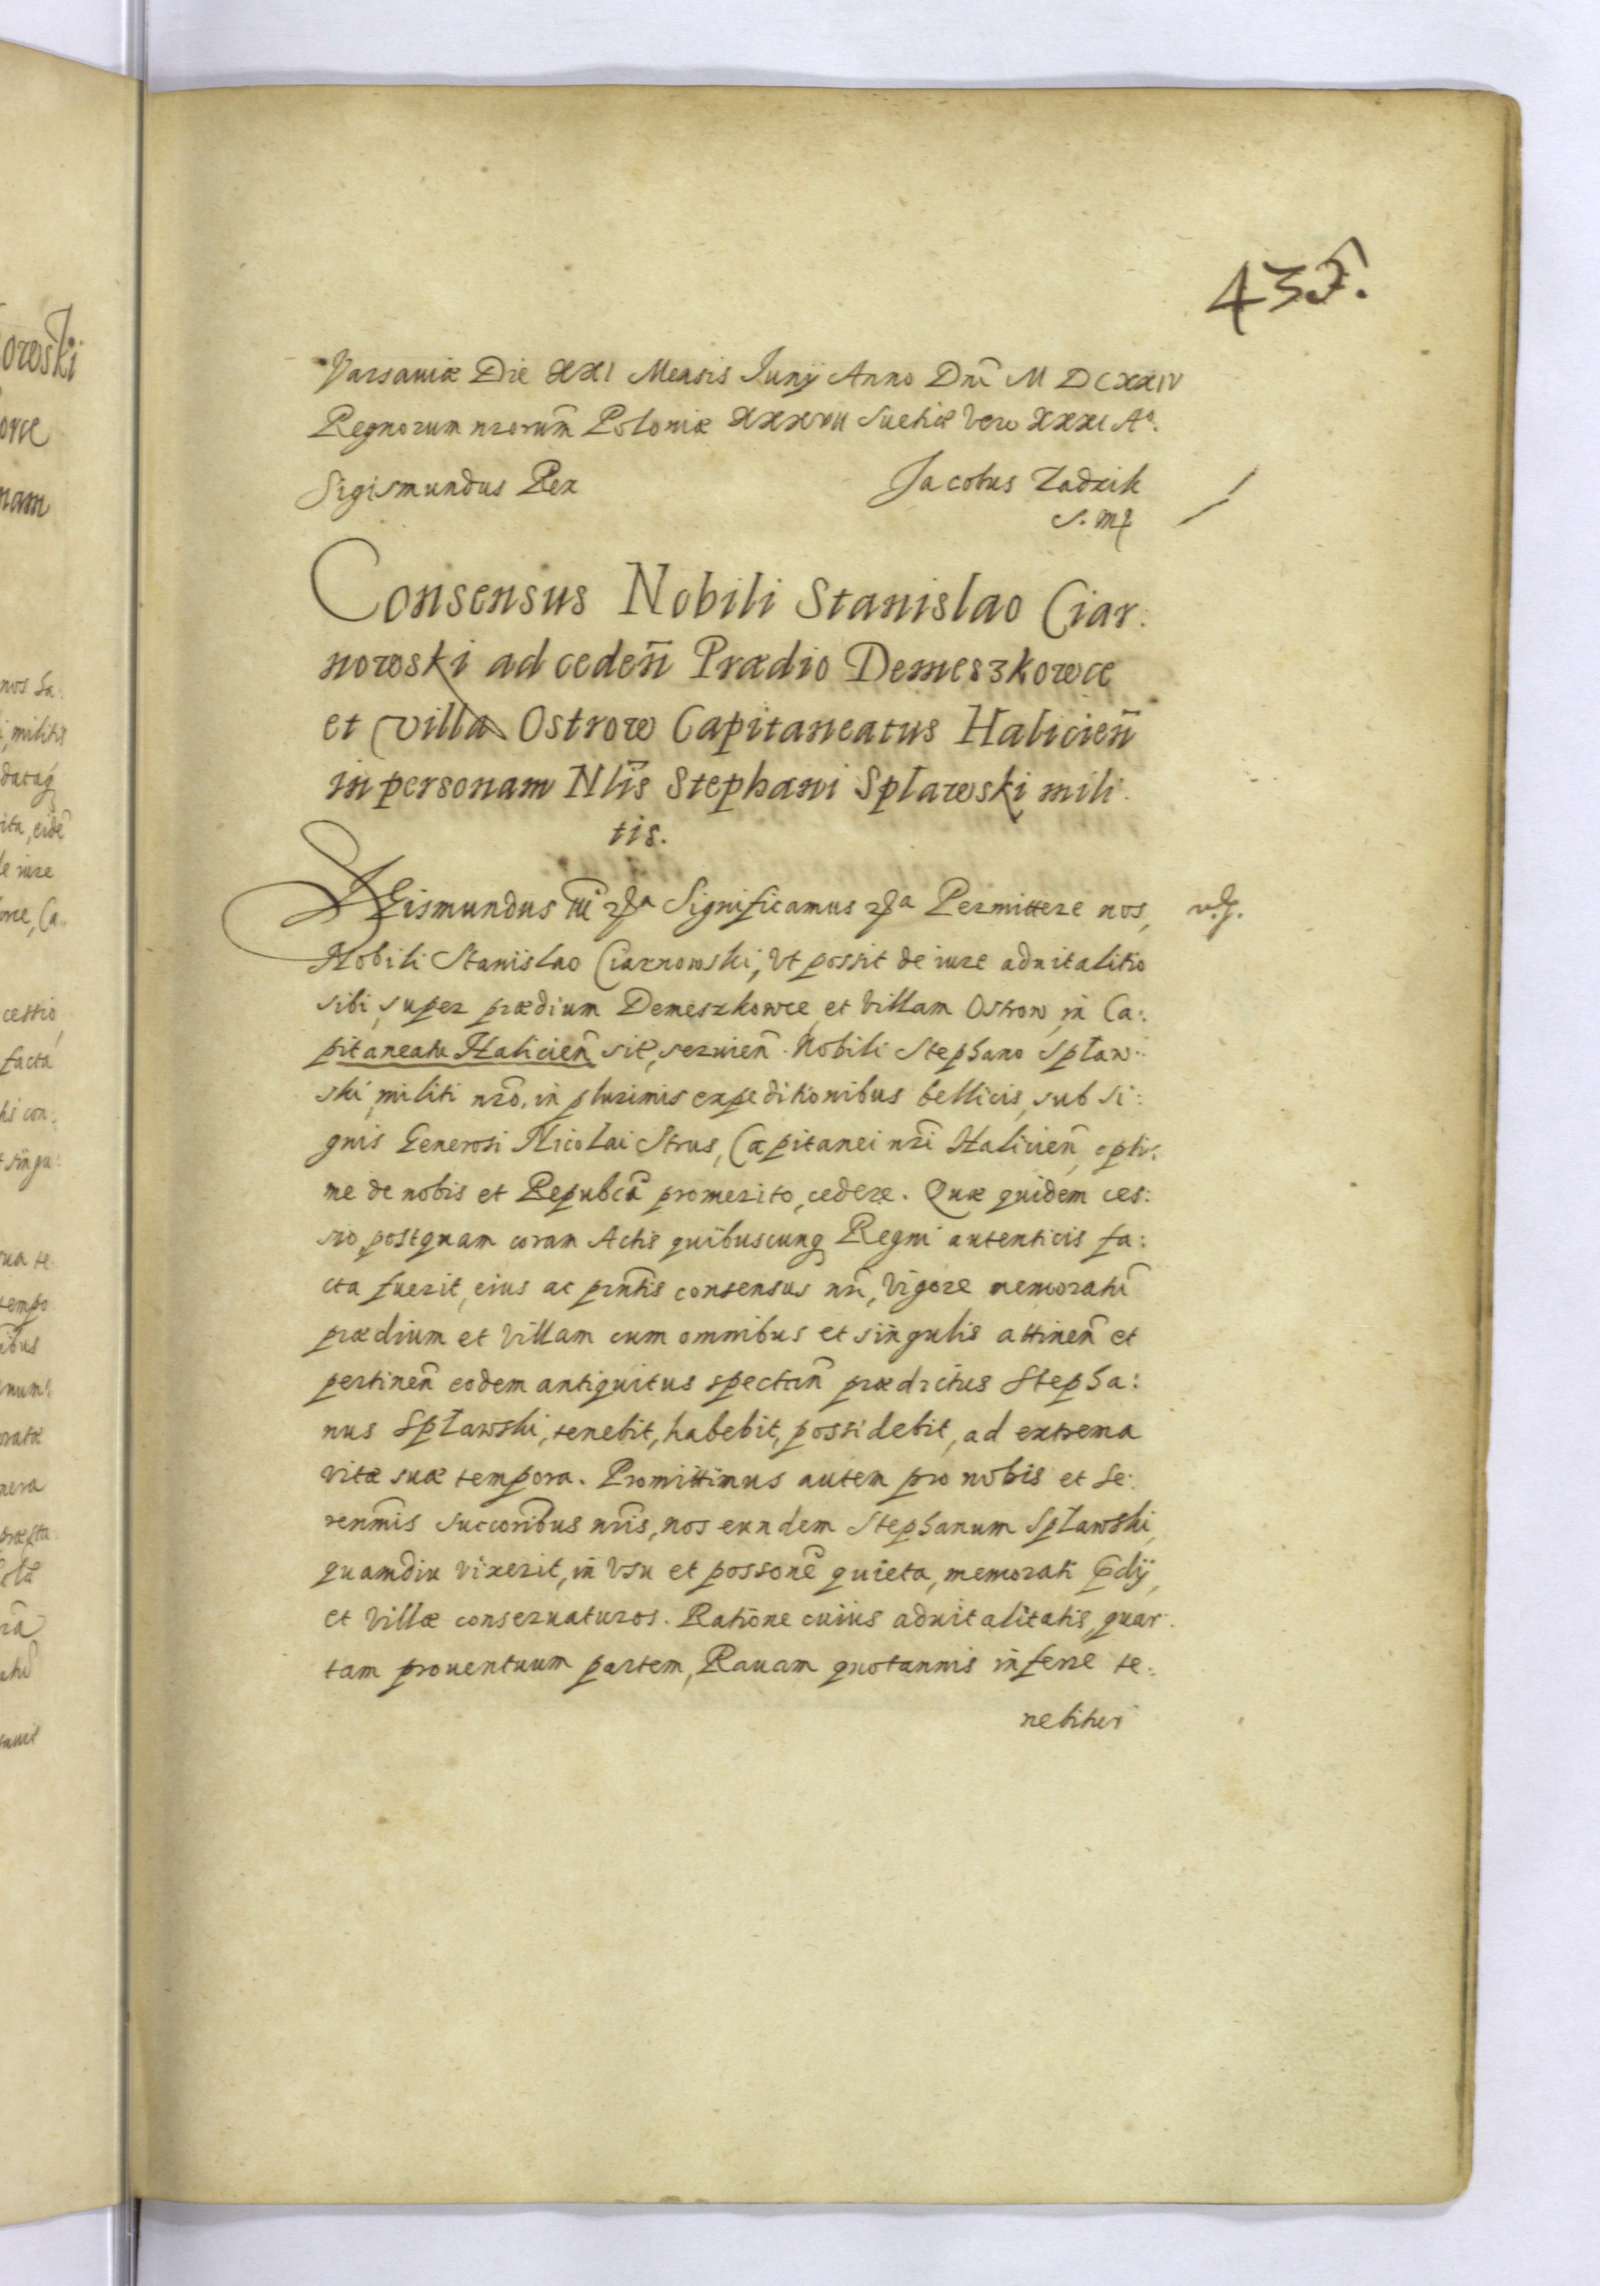 435.
Varsaviæ Die XXI Mensis Iunij Anno Dnī M DCXXIV
Regnorum nrorum̄ Poloniæ XXXVII Suetiæ Vero XXXI Aº.
Sigismundus Rex Jacobus Zadzik
S. mp
Consensus Nobili Stanislao Ciar:
nowski ad ceden̄ Prædio Demeszkowce
et villa Ostrow Capitaneatus Halicien̄
in personam Nlis Stephani Spławski mili:
tis.
SIGismundus III Significamus Permittere nos,
Nobili Stanislao Ciarnowski, Vt possit de iure aduitalitio
sibi, super prædium Demeszkowce, et Villam Ostrow, in Ca:
pitaneatu Halicien̄ sit, seruien̄. Nobili Stephano Spław:
ski, militi nrō, in plurimis expeditionibus bellicis, sub Si:
gnis Generosi Nicolai Strus, Capitanei nrī Halicien̄, opti:
me de nobis et Repubcā promerito, cedere. Quæ quidem ces:
sio, postquam coram Actis quibuscunq Regni autenticis fa:
cta fuerit, eius ac prntīs consensus nrī, Vigore memoratū
prædium et Villam cum omnibus et singulis attinen̄ et
pertinen̄ eodem antiquitus spectan̄ prædictus Stepha:
nus Spławski, tenebit, habebit, possidebit, ad extrema
vitæ suæ tempora. Promittimus autem pro nobis et Se:
renmīs succorībus nrīs, nos eundem Stephanum Spławski,
quamdiu vixerit, in Vsu et possonē quieta, memorati Pdij,
et Villæ conseruaturos. Ratīone cuius aduitalitatis, quar:
tam prouentuum partem, Rauam quotannis inferre te:
nebitur